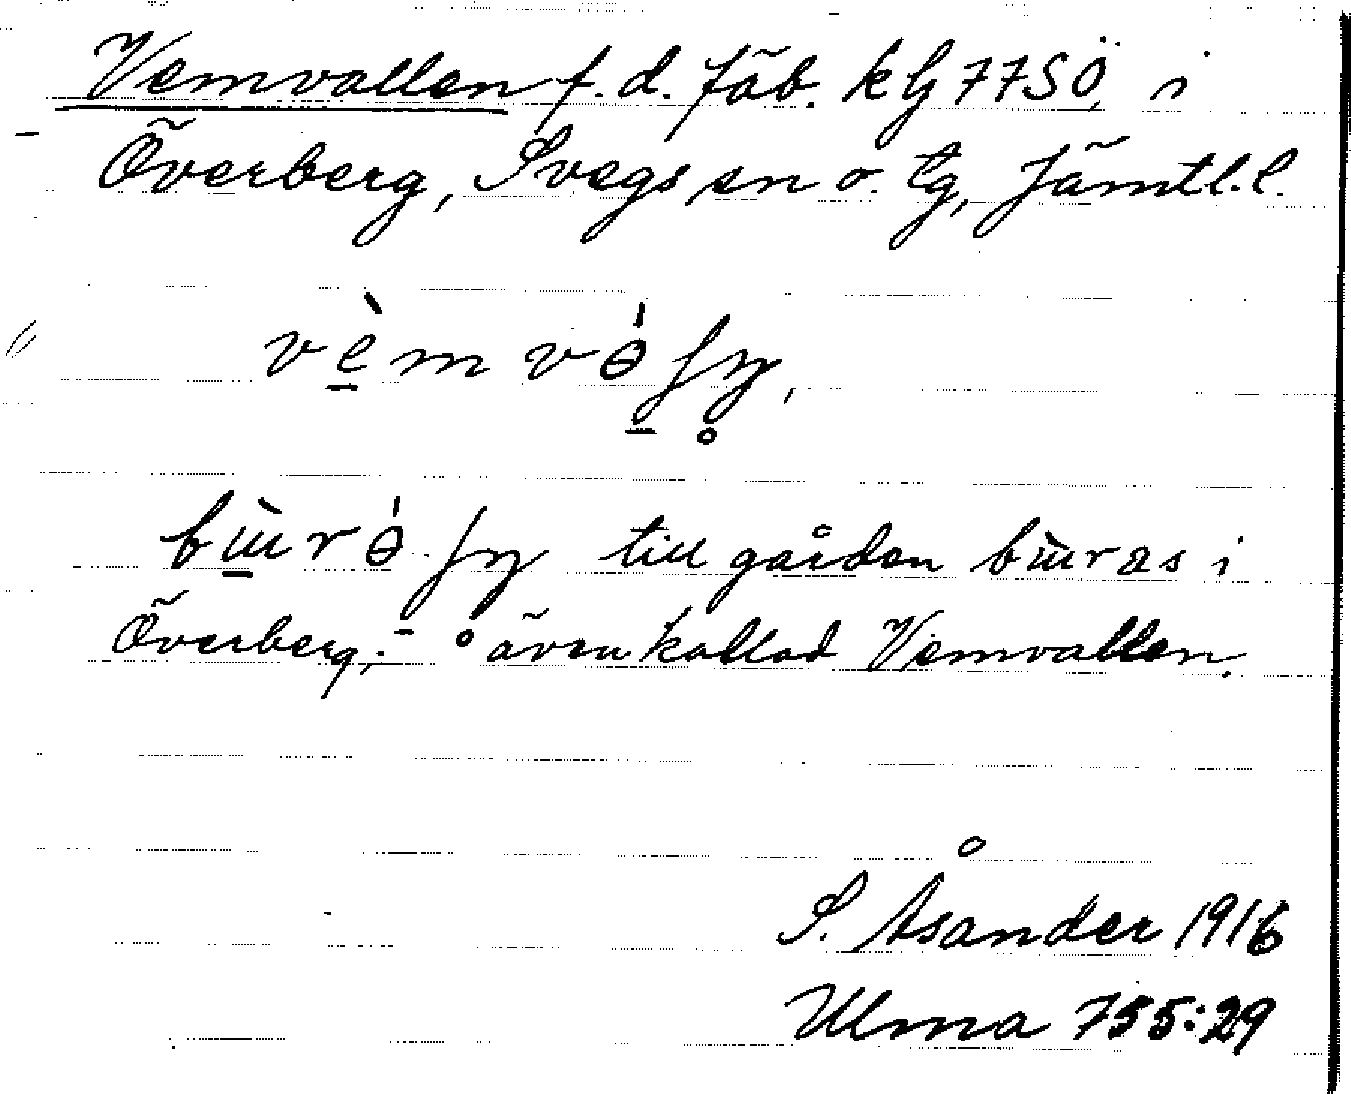 Vemvallen f. d. fäb. k lj 77SÖ, i
Överberg, Svegs sn o. tg, Jämtl. l.
till gården i
Överberg; även kallad Vemvallen.
S. Åsander 1916
Ulma 755:29